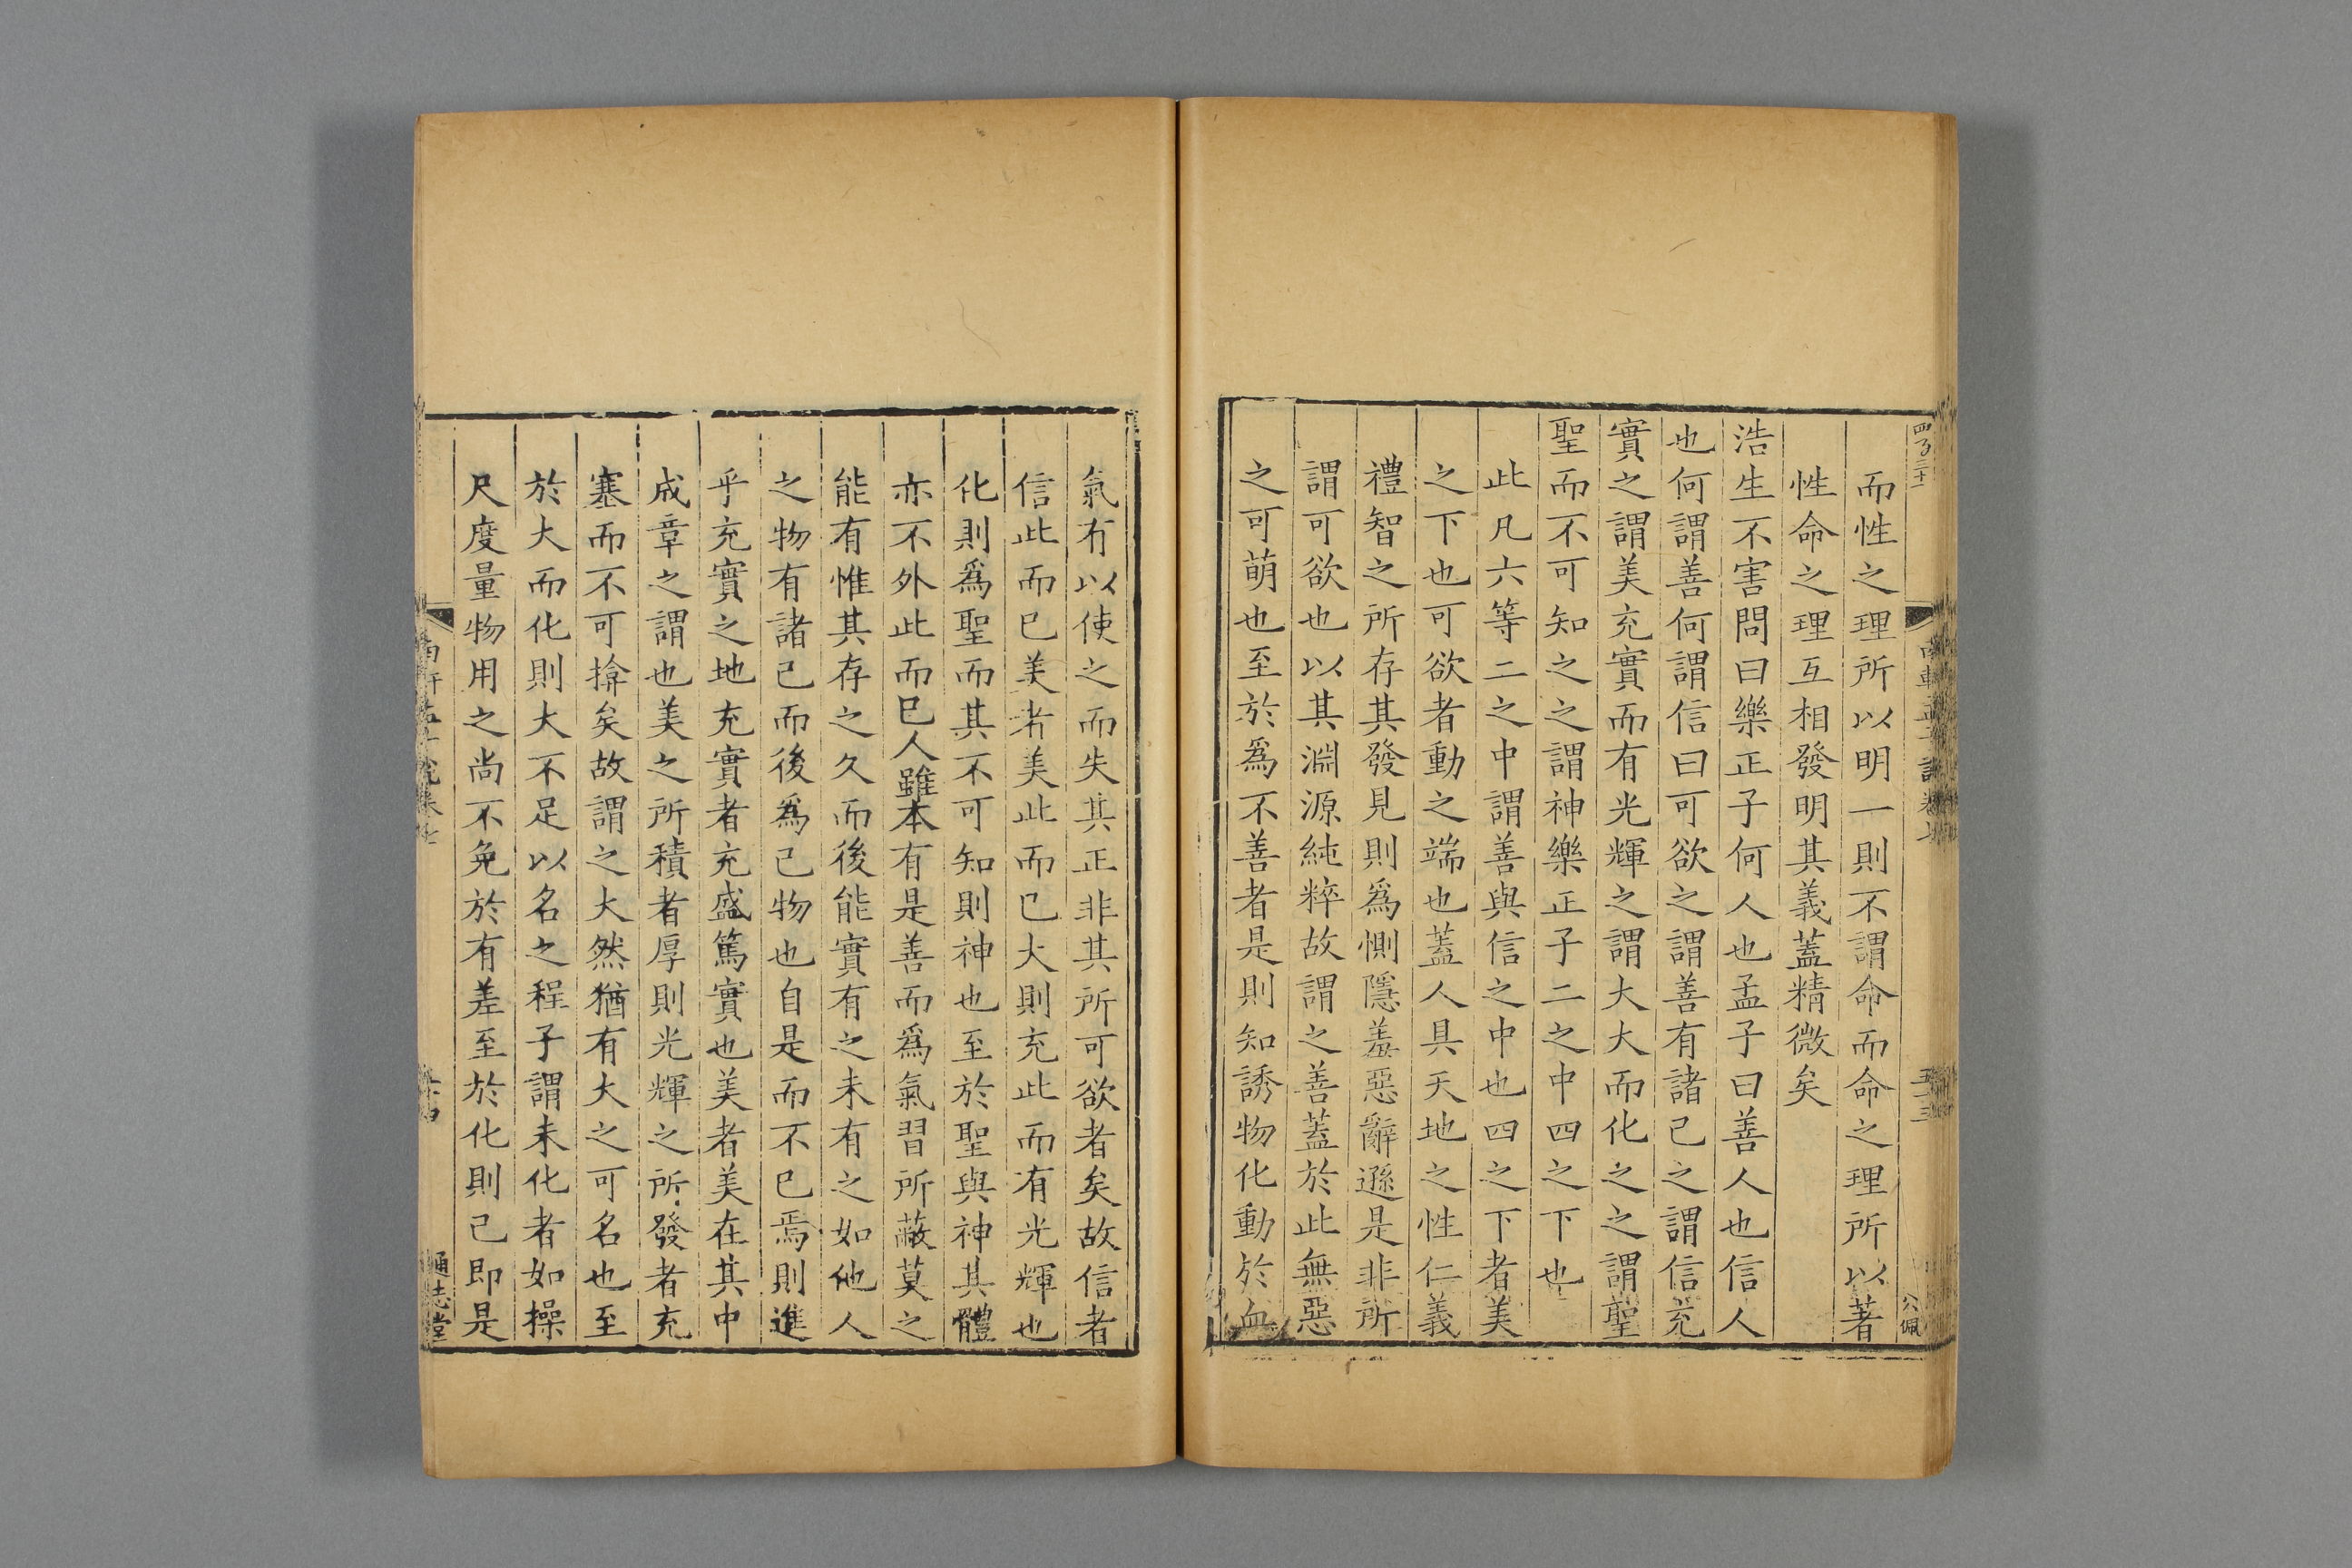 而性之理所以明一則不謂命而命之理所以著
性命之理互相發明其義蓋精微矣
浩生不害問曰樂正子何人也孟子曰善人也信人
也何謂善何謂信曰可欲之謂善有諸己之謂信充
實之謂美充實而有光輝之謂大大而化之之謂聖
聖而不可知之之謂神樂正子二之中四之下也
此凡六等二之中謂善與信之中也四之下者美
之下也可欲者動之端也蓋人具天地之性仁義
禮智之所存其發見則爲惻隱羞惡辭遜是非所
謂可欲也以其淵源純粹故謂之善蓋於此無惡
之可萌也至於爲不善者是則知誘物化動於血
氣有以使之而失其正非其所可欲者矣故信者
信此而已美者美此而已大則充此而有光輝也
化則爲聖而其不可知則神也至於聖與神其體
亦不外此而已人雖本有是善而爲氣習所蔽莫之
能有惟其存之久而後能實有之未有之如他人
之物有諸己而後爲己物也自是而不已焉則進
乎充實之地充實者充盛篤實也美者美在其中
成章之謂也美之所積者厚則光輝之所發者充
塞而不可揜矣故謂之大然猶有大之可名也至
於大而化則大不足以名之程子謂未化者如操
尺度量物用之尚不免於有差至於化則己即是
通志堂